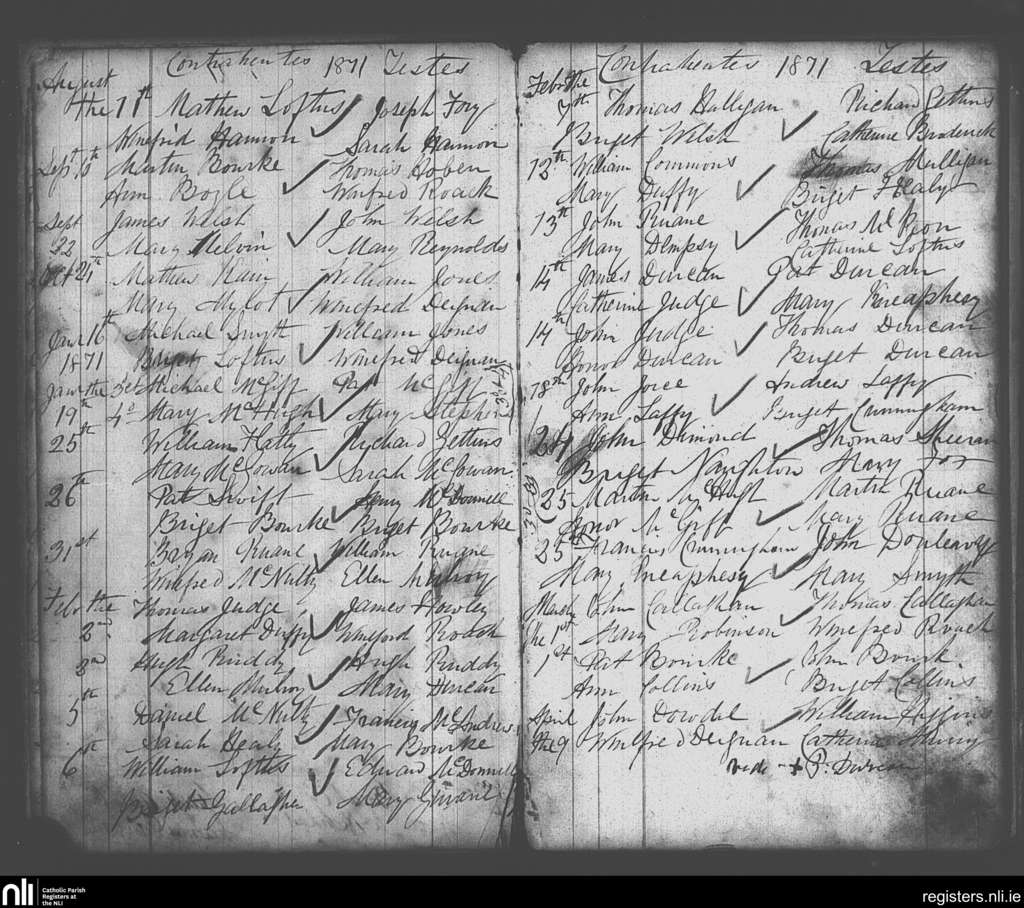 Contrahentes 1871 Testes
August
the 11th Mathew Loftus Joseph Foy
Winefrid Hannon Sarah Hannon
Sept. Martin Bourke Thomas Hoben
Ann Bogle Winfred Roack
Sept James Welsh John Welsh
22 Mary Melvin Mary Reynolds
24th Mathew William Jones
Mary Winefred Deignan
Janr 16th Michael Smyth William Jones
1871 Briget Loftus Winefred Deignan
Janr the 3et Michael McGiff Pat McGiff
19th 4o Mary McHugh Mary Stephens
25th William Flatly Richard Gettins
Mary McGowan Sarah McGowan
26th Pat Swift McDonnell
Briget Bourke Briget Bourke
31st Bryan Ruane William Ruane
Winifred McNulty Ellen Mulroy
Febr the Thomas Judge James Howley
2nd Margaret Duffy Wineford Roach
3rd Hugh Ruddy Hugh Ruddy
Ellen Mulroy Mary Duncan
5th Daniel McNulty Francis McAndrew
Sarah Healy Mary Bourke
6 William Loftus Edward McDonnell
Briget Gallagher Mary
Contrahentes 1871 Testes
Febr the
7th Thomas Halligan Richard Gettins
Briget Welsh Catherine Broderick
12th William Commons Thomas Mulligan
Mary Duffy Briget Healy
13th John Ruane Thomas
Mary Dempsy Catherine Loftus
14th James Duncan Pat Duncan
Catherine Judge Mary Kneaphesy
14th John Judge Thomas Duncan
Honor Duncan Briget Duncan
18th John Joice Andrew Laffy
Ann Laffy Briget Cunningham
24 John Dimond Thomas Sheeran
Briget Naughton Mary
25 Martin McHugh Martin Ruane
Honor McGiff Mary Ruane
25th Francis Cunningham John Donleavy
Mary Kneaphesy Mary Smyth
March John Callaghan Thomas Callaghan
the 1st Mary Robinson Winefred Roach
1st Pat Bourke John Bourk
Ann Collins Briget Collins
April John Dowdal William
the 9 Winifred Deignan Catherine
vide + P.
nli
Catholic Parish
Registers at
the NLI
registers.nli.ie